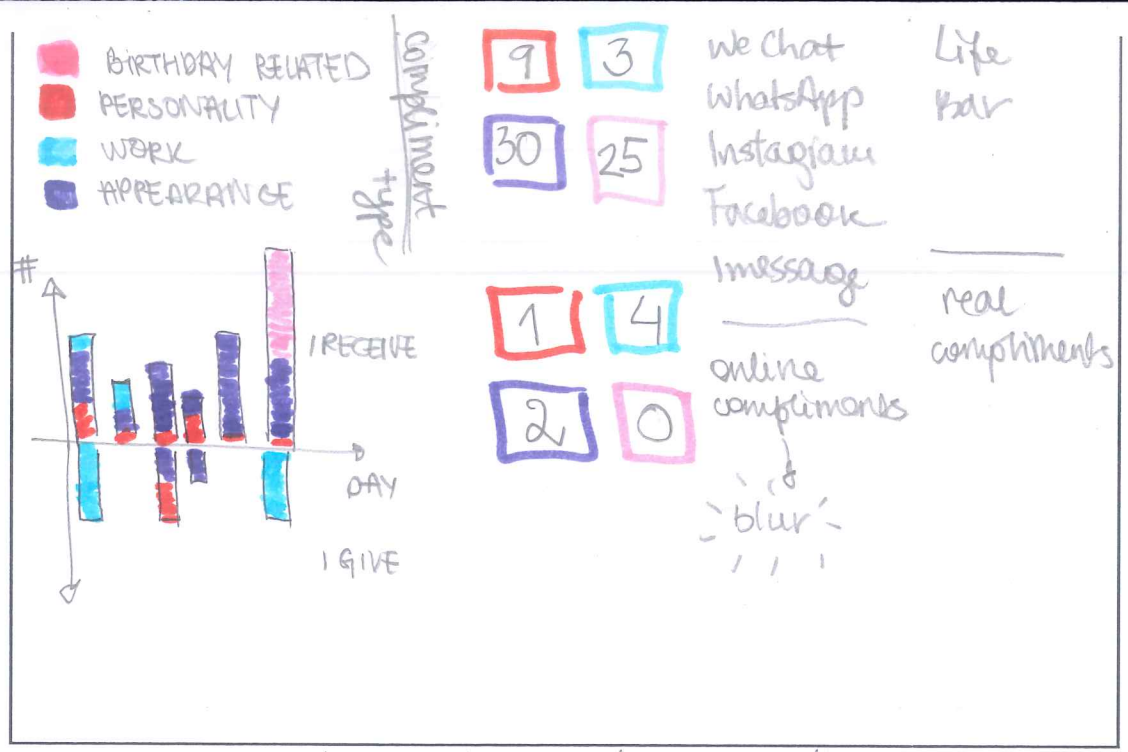 BIRTHDAY RELATED
PERSONALITY
WORK
APPEARANCE
compliment
type
#
I RECEIVE
DAY
I GIVE
9 3
30 25
1 4
2 0
WeChat
WhatsApp
Instagram
Facebook
Imessage
online
compliments
blur
Life
Bar
real
compliments